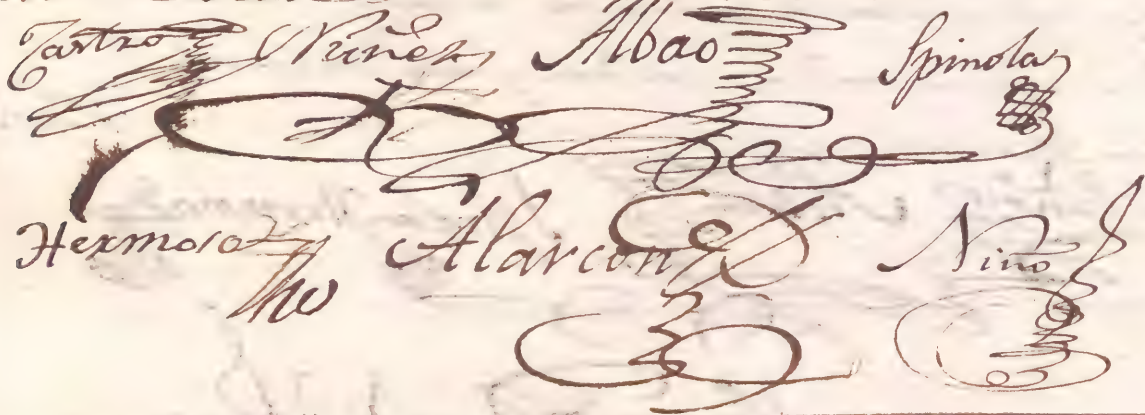 Castro Nuñez Albao Spinola
Hermoso Alarcon Niño